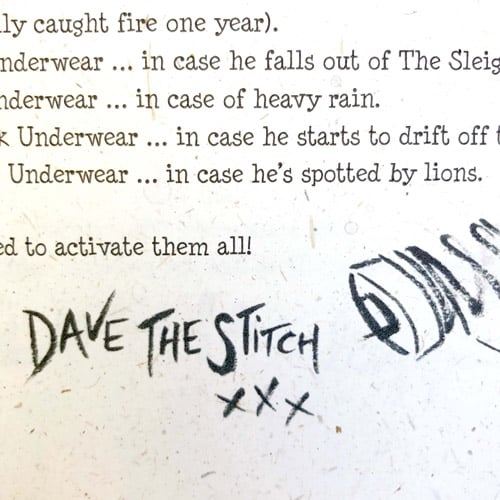 lly caught fire one year).
nderwear ... in case he falls out of The Sleig
nderwear ... in case of heavy rain.
k Underwear ... in case he starts to drift off t
Underwear ... in case he's spotted by lions.
ed to activate them all!
DAVE THE STITCH
xxx